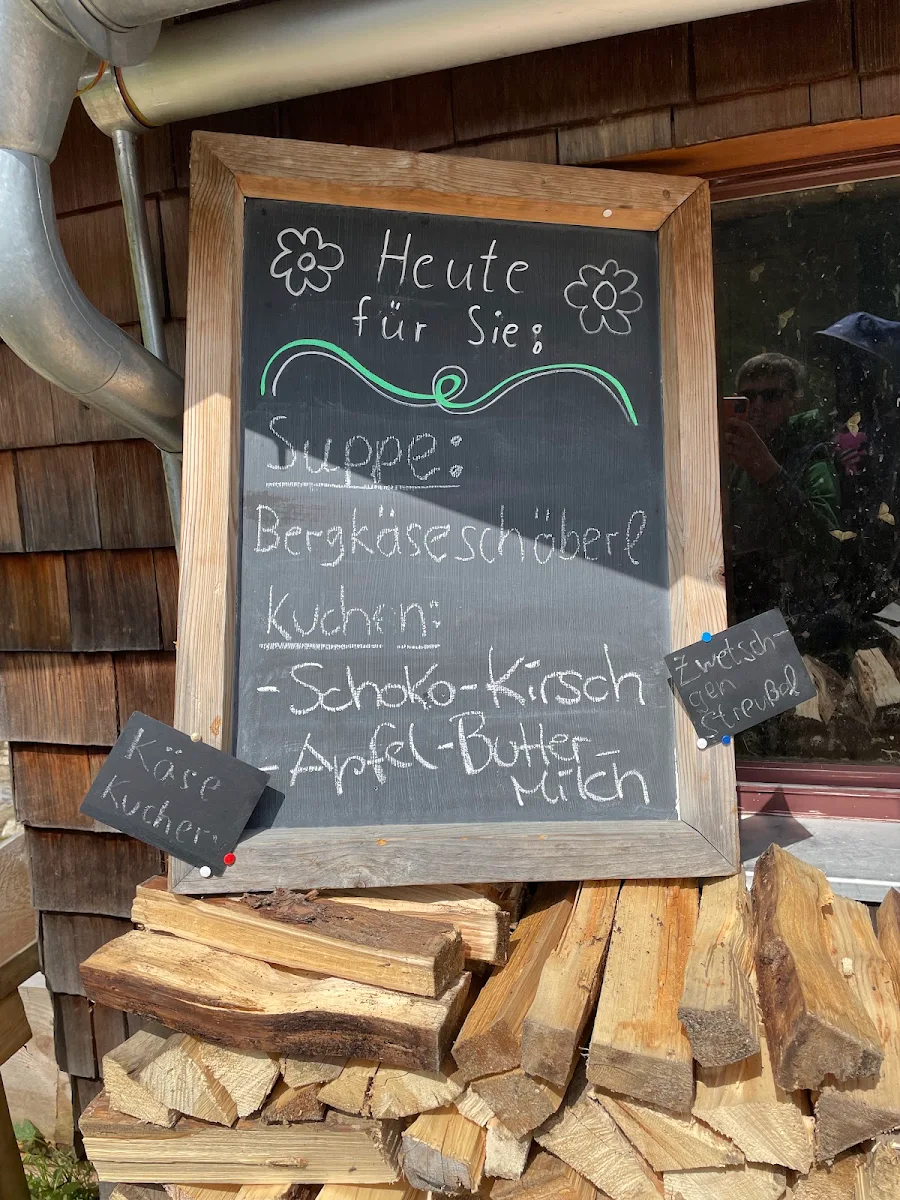 Heute
für Sie:
Suppe:
Bergkäseschöberl
Kuchen:
- Schoko-Kirsch
- Apfel-Butter-
Milch
Käse
Kuchen
Zwetsch-
gen
Streußel